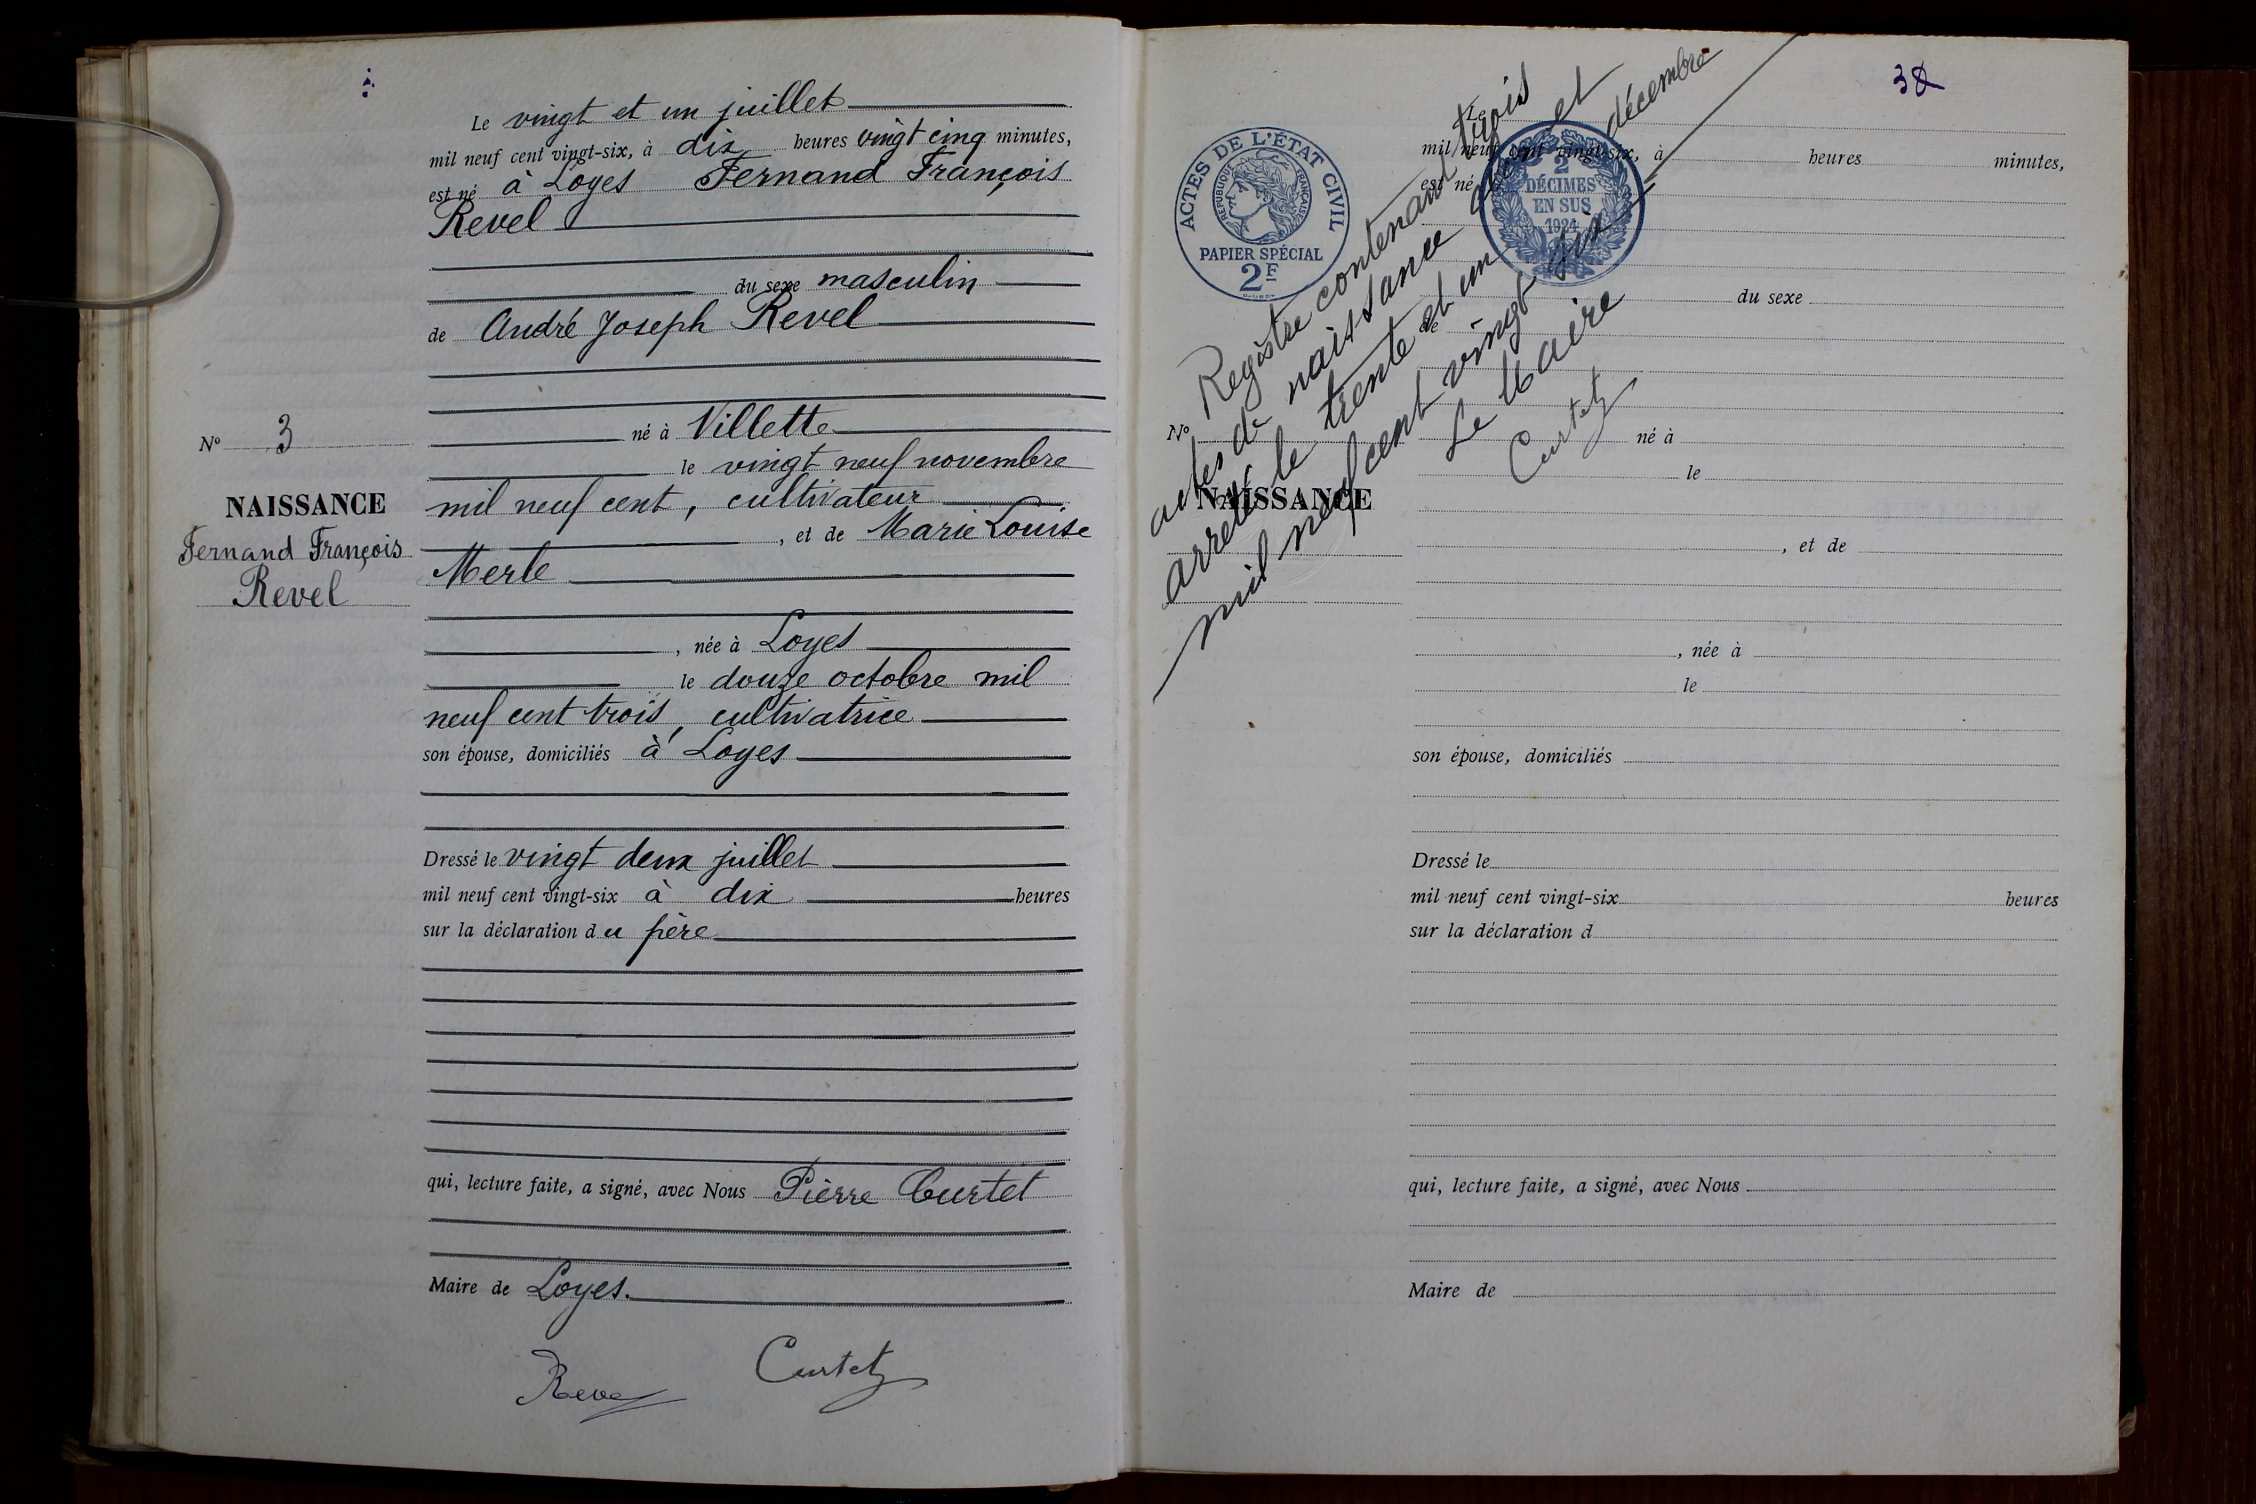 Le vingt et un juillet
mil neuf cent vingt-six, à dix heures vingt cinq minutes,
est né à Loyes Fernand François
Revel
du sexe masculin
de André Joseph Revel
né à Villette
le vingt neuf novembre
mil neuf cent, cultivateur
, et de Marie Louise
Merle
, née à Loyes
le douze octobre mil
neuf cent trois, cultivatrice
son épouse, domiciliés à Loyes
Dressé le vingt deux juillet
mil neuf cent vingt-six à dix heures
sur la déclaration du père
qui, lecture faite, a signé, avec Nous Pierre Curtet
Maire de Loyes.
Revel
Curtet
N° 3
NAISSANCE
Fernand François
Revel
38
ACTES DE L'ÉTAT CIVIL
RÉPUBLIQUE FRANÇAISE
PAPIER SPÉCIAL
2F
2
DÉCIMES
EN SUS
1924
Registre contenant trois
actes de naissance et
arrêté le trente et un décembre
mil neuf cent vingt six
Le Maire
Curtet
N°
NAISSANCE
Le
mil neuf cent vingt-six, à heures minutes,
est né
du sexe
de
né à
le
, et de
, née à
le
son épouse, domiciliés
Dressé le
mil neuf cent vingt-six heures
sur la déclaration d
qui, lecture faite, a signé, avec Nous
Maire de